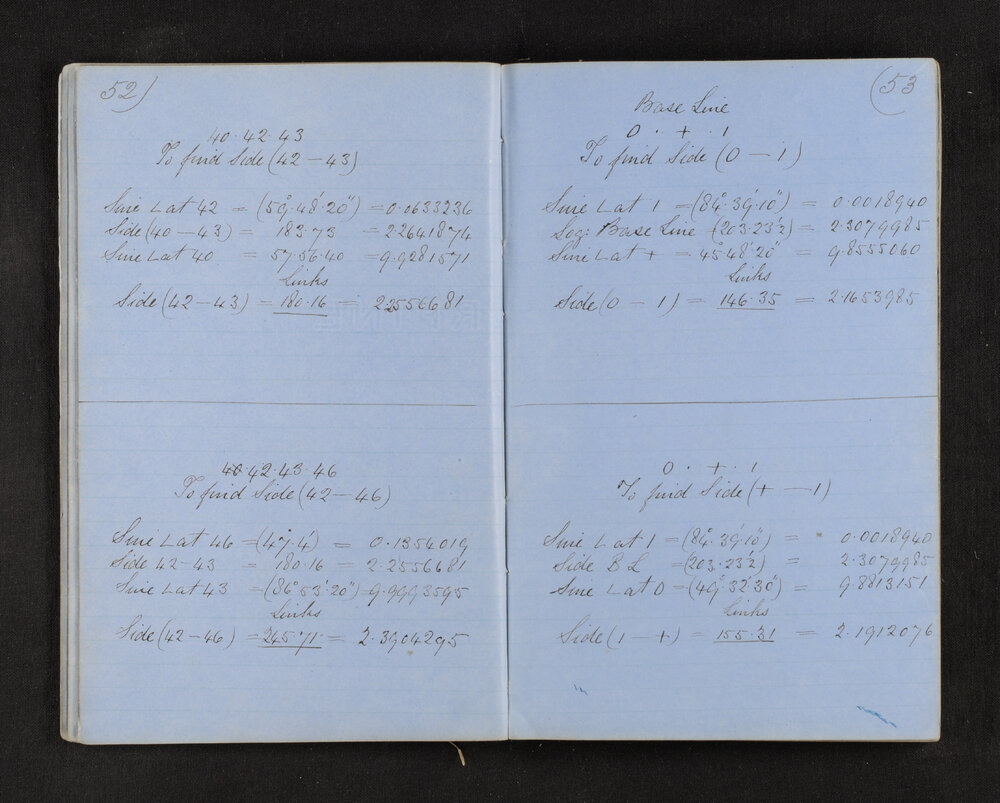 52)
40·42·43
To find Side (42 — 43)
Sine Lat 42 = (59°.48'.20") = 0.0633236
Side (40 — 43) = 183·73 = 2.2641874
Sine Lat 40 = 57·56·40 = 9.9281571
Links
Side (42 — 43) = 180·16 = 2.2556681
40·42·43·46
To find Side (42 — 46)
Sine Lat 46 = (47°.4') = 0.1354019
Side 42-43 = 180·16 = 2.2556681
Sine Lat 43 = (86°53'·20") = 9.9993595
Links
Side (42 — 46) = 245·71 = 2.3904295
(53
Base Line
0 · + · 1
To find Side (0 — 1)
Sine Lat 1 = (84°.39'.10") = 0.0018940
Log: Base Line (203·23½) = 2.3079985
Sine Lat + = 45°48'·20" = 9.8555060
Links
Side (0 — 1) = 146·35 = 2.1653985
0 · + · 1
To find Side (+ — 1)
Sine Lat 1 = (84°.39'10") = 0.0018940
Side B L = (203·23½) = 2.3079985
Sine Lat 0 = (49°·32'·30") = 9.8813151
Links
Side (1 — +) = 155·31 = 2.1912076